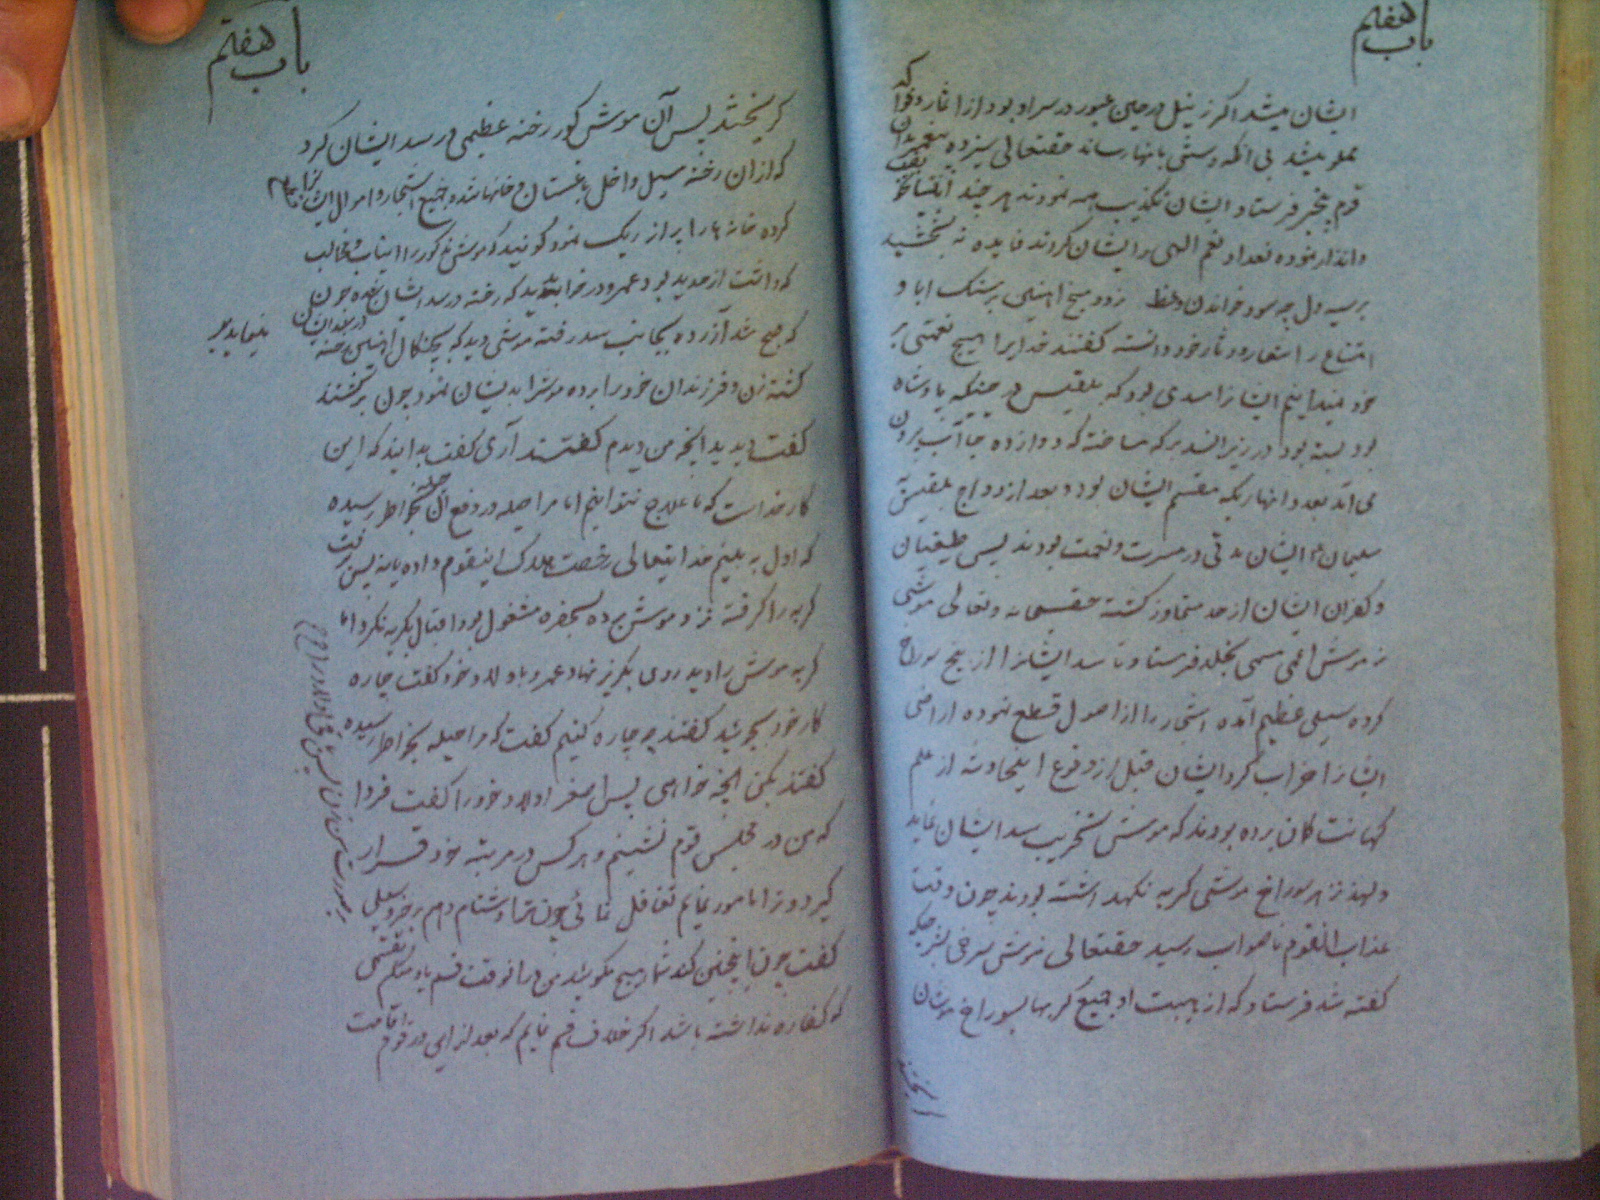 باب هفتم
ایشان میشد اگر زنبیل در حین عبور در سر او بود از اثمار و فواکه
مملو میشد بی آنکه دستی بانها رساند حقتعالی سیزده پیغمبر بدان
قوم فرستاد ایشان تکذیب همه نمودند هر چند
و انذار نموده تعداد نعم الهی بر ایشان کردند فایده نه بخشید
بر سیه دل چه سود خواندن وعظ نرود میخ آهنین بر سنک ابا و
امتناع را شعار و دثار خود دانسته گفتند خدایرا هیچ نعمتی بر
خود نمیدانیم ایشانرا سدی بود که بلقیس در حینیکه پادشاه
بود بسته بود در زیر آنسد برکه ساخته که دوازده جا آب برون
می آمد بعدد انهاریکه مقسم ایشان بود و بعد از ازدواج بلقیس
سلیمان ع ایشان مدتی در مسرت و نعمت بودند پس طغیان
و کفران ایشان از حد متجاوز گشته حقسبحانه و تعالی موشی
ز موش اعمی مسمی بخلد فرستاد تا سد ایشانرا از بیخ سوراخ
کرده سیلی عظیم آمده اشجار را از اصول قطع نموده اراضی
ایشانرا خراب کرد ایشان قبل از وقوع اینحادثه از علم
کهانت گمان برده بودند که موش تخریب سد ایشان نماید
و لهذا نزد هر سوراخ موشی گربه نگهداشته بودند چون وقت
عذاب آنقوم ناصواب رسید حقتعالی موش سرخی بنزدیکه
گفته شد فرستاد که از هیبت او جمیع گربها بسوراخ موشان
باب هفتم
گریختند پس آن موش کور رخنه عظیمی در سد ایشان کرد
که از ان رخنه سیل داخل باغستان و خانها شد و جمیع اشجار و اموال ایشانرا
کرده خانه ها را پر از ریک نمود گویند که موش مذکور را انیاب و مخالب
که داشت از حدید بود عمرو در خواب دید که رخنه در سد ایشان شده چون
که صبح شد آزرده بجانب سد رفته موشی دید که بچنگال آهنین رخنه
گشته زن و فرزندان خود را برده موشرا بدیشان نمود چون برگشتند
گفت دیدید آنچه من دیدم گفتند آری گفت بدانید که این
کار خداست که ما علاج نتوانیم اما مرا حیله در دفع آن بخواطر رسیده
که اول به بینم خدایتعالی رخصت هلاک اینقوم داده یا نه پس
گربه را گرفته نزد موش برده بحفره مشغول بود اقبال بگربه نکرد اما
گربه موش را دید روی بگریز نهاد عمرو با اولاد خود گفت چاره
کار خود بجوئید گفتند چه چاره کنیم گفت که مرا حیله بخواطر رسیده
گفتند بکن آنچه خواهی پس اصغر اولاد خود را گفت فردا
که من در مجلس قوم نشینم و هر کس در مرتبه خود قرار
گیرد و ترا مامور نمایم تغافل نمائی چون ترا دشنام دهم برخیز و سیلی
گفت چون اینچنین کند شما هیچ مگوئید من در انوقت قسم یاد میکنم
که کفاره نداشته باشد اگر خلاف قسم نمایم که بعد از این در قوم اقامت